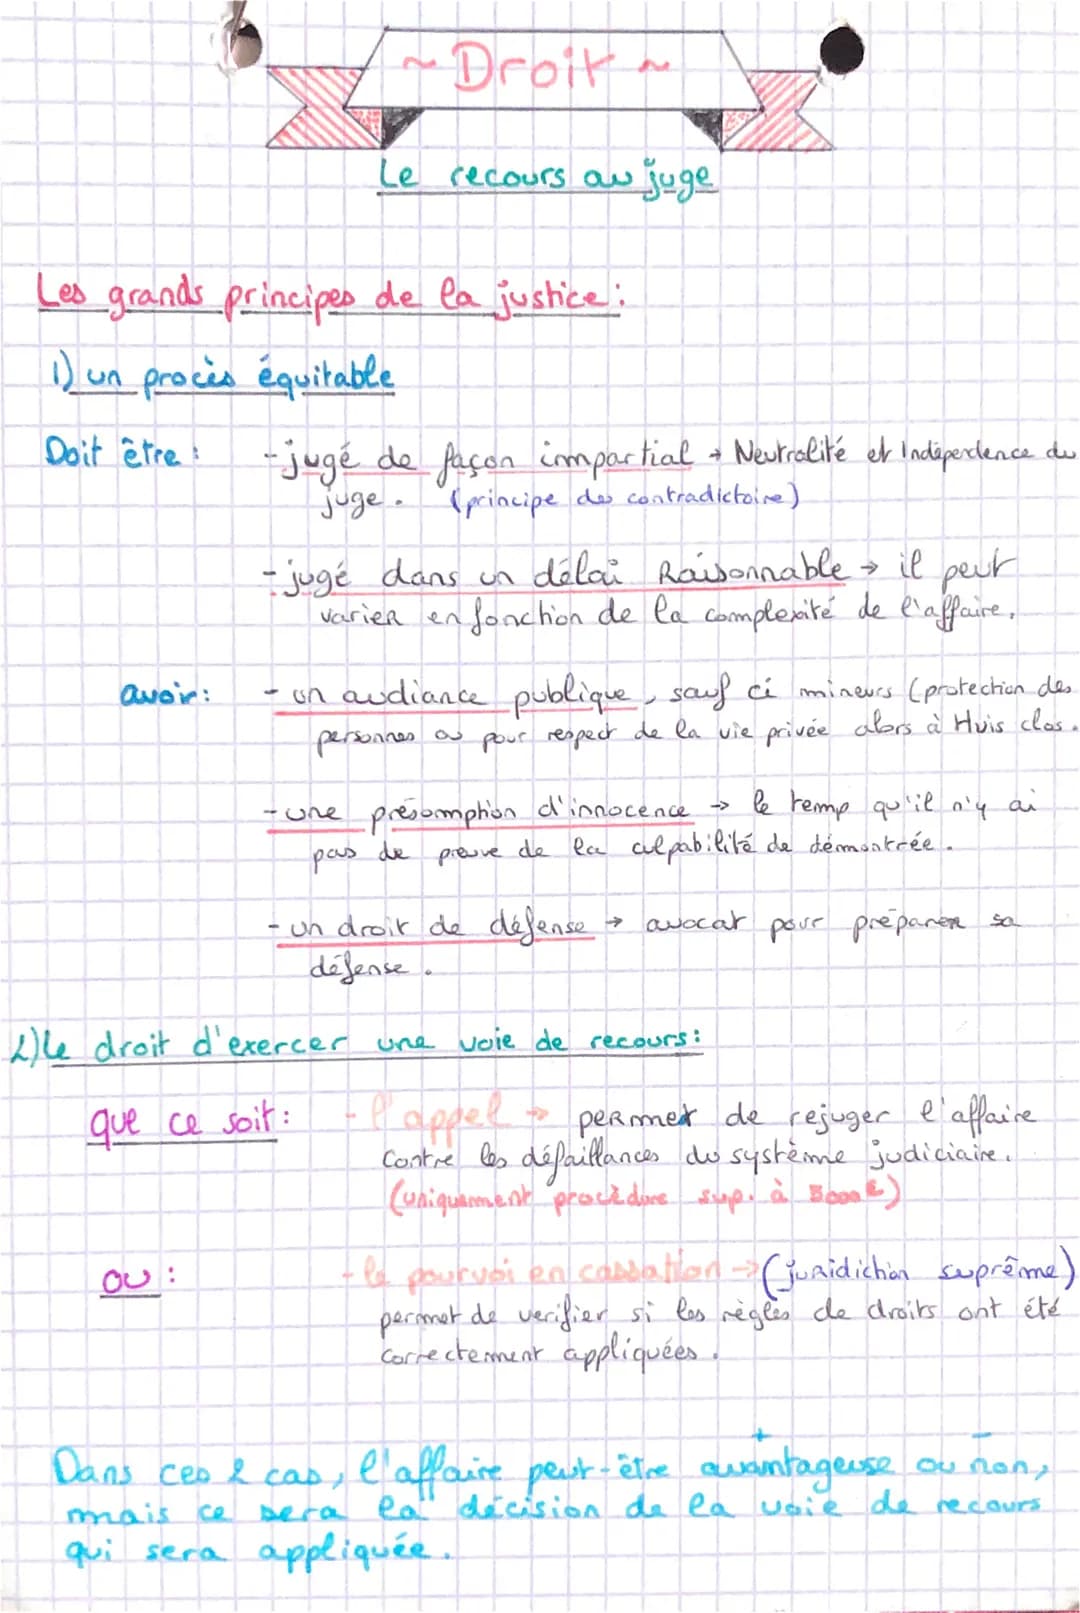 ~ Droit ~
Le recours au juge
Les grands principes de la justice :
1) un procès équitable
Doit être : - jugé de façon impartial → Neutralité et Indépendence du
juge. (principe des contradictoire)
- jugé dans un délai Raisonnable → il peut
varier en fonction de la complexité de l'affaire.
avoir : - un audiance publique, sauf ci mineurs (protection des
personnes ou pour respect de la vie privée alors à Huis clos.
- une présomption d'innocence → le temp qu'il n'y ai
pas de preuve de la culpabilité de démontrée.
- un droit de défense → avocat pour préparer sa
défense.
2) Le droit d'exercer une voie de recours :
que ce soit : - l'appel → permet de rejuger l'affaire
Contre les défaillances du système judiciaire.
(uniquement procédure sup. à 5000 €)
ou : - le pourvoi en cassation → (juridiction suprême)
permet de verifier si les règles de droits ont été
correctement appliquées.
+ -
Dans ces 2 cas, l'affaire peut-être avantageuse ou non,
mais ce sera la décision de la voie de recours
qui sera appliquée.